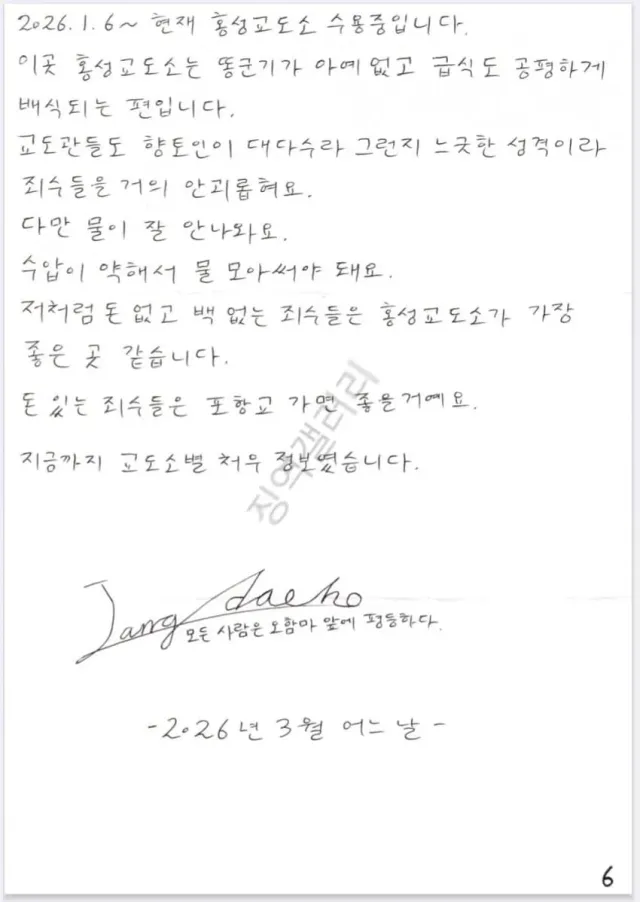 2026.1.6~ 현재 홍성교도소 수용중입니다.
이곳 홍성교도소는 똥군기가 아예없고 급식도 공평하게
배식되는 편입니다.
교도관들도 향토인이 대다수라 그런지 느긋한 성격이라
죄수들을거의 안괴롭혀요.
다만 물이 잘 안나와요.
수압이 약해서 물 모아써야 돼요.
저처럼돈없고 백없는 죄수들은 홍성교도소가 가장
좋은 곳 같습니다.
돈 있는 죄수들은 포항교 가면 좋을거예요.
지금까지 교도소별 처우 정보였습니다.
징역갤러리
Jang daeho
모든 사람은 오함마 앞에 평등하다.
-2026년 3월 어느 날-
6